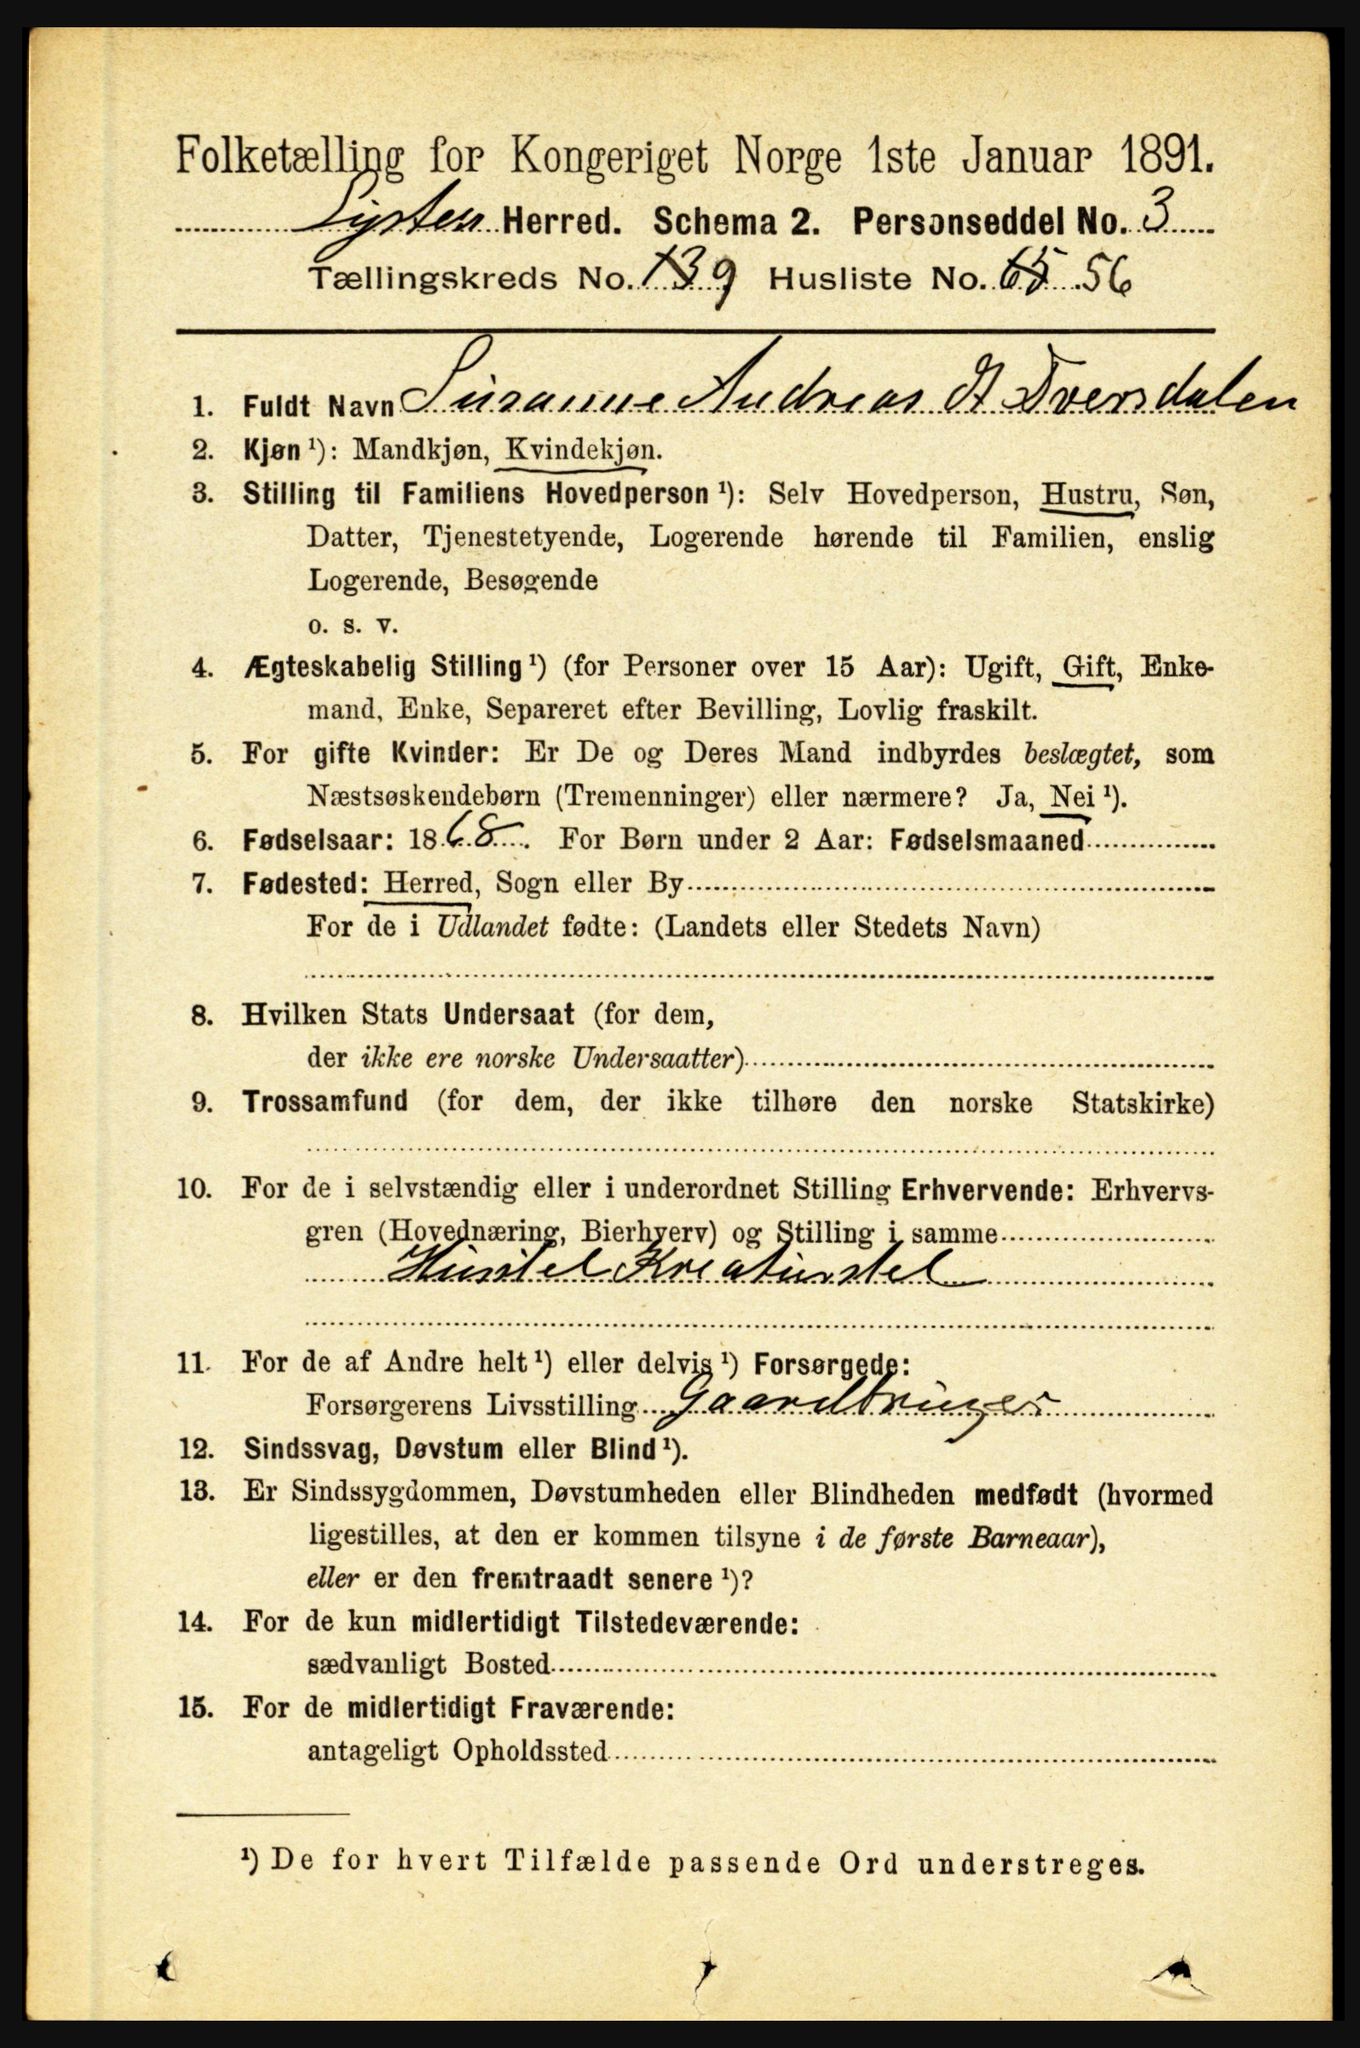 Folketælling for Kongeriget Norge 1ste Januar 1891.
Lyster Herred. Schema 2. Personseddel No. 3
Tællingskreds No. 139 Husliste No. 65 56
1. Fuldt Navn Susanne Andreas D. Dversdalen
2. Kjøn ¹): Mandkjøn, Kvindekjøn.
3. Stilling til Familiens Hovedperson ¹): Selv Hovedperson, Hustru, Søn,
Datter, Tjenestetyende, Logerende hørende til Familien, enslig
Logerende, Besøgende
o. s. v.
4. Ægteskabelig Stilling ¹) (for Personer over 15 Aar): Ugift, Gift, Enke-
mand, Enke, Separeret efter Bevilling, Lovlig fraskilt.
5. For gifte Kvinder: Er De og Deres Mand indbyrdes beslægtet, som
Næstsøskendebørn (Tremenninger) eller nærmere? Ja, Nei ¹).
6. Fødselsaar: 1868. For Børn under 2 Aar: Fødselsmaaned
7. Fødested: Herred, Sogn eller By
For de i Udlandet fødte: (Landets eller Stedets Navn)
8. Hvilken Stats Undersaat (for dem,
der ikke ere norske Undersaatter)
9. Trossamfund (for dem, der ikke tilhøre den norske Statskirke)
10. For de i selvstændig eller i underordnet Stilling Erhvervende: Erhvervs-
gren (Hovednæring, Bierhverv) og Stilling i samme
Husstel Kreaturstel
11. For de af Andre helt ¹) eller delvis ¹) Forsørgede:
Forsørgerens Livsstilling Gaardbruger
12. Sindssvag, Døvstum eller Blind ¹).
13. Er Sindssygdommen, Døvstumheden eller Blindheden medfødt (hvormed
ligestilles, at den er kommen tilsyne i de første Barneaar),
eller er den fremtraadt senere ¹)?
14. For de kun midlertidigt Tilstedeværende:
sædvanligt Bosted
15. For de midlertidigt Fraværende:
antageligt Opholdssted
¹) De for hvert Tilfælde passende Ord understreges.